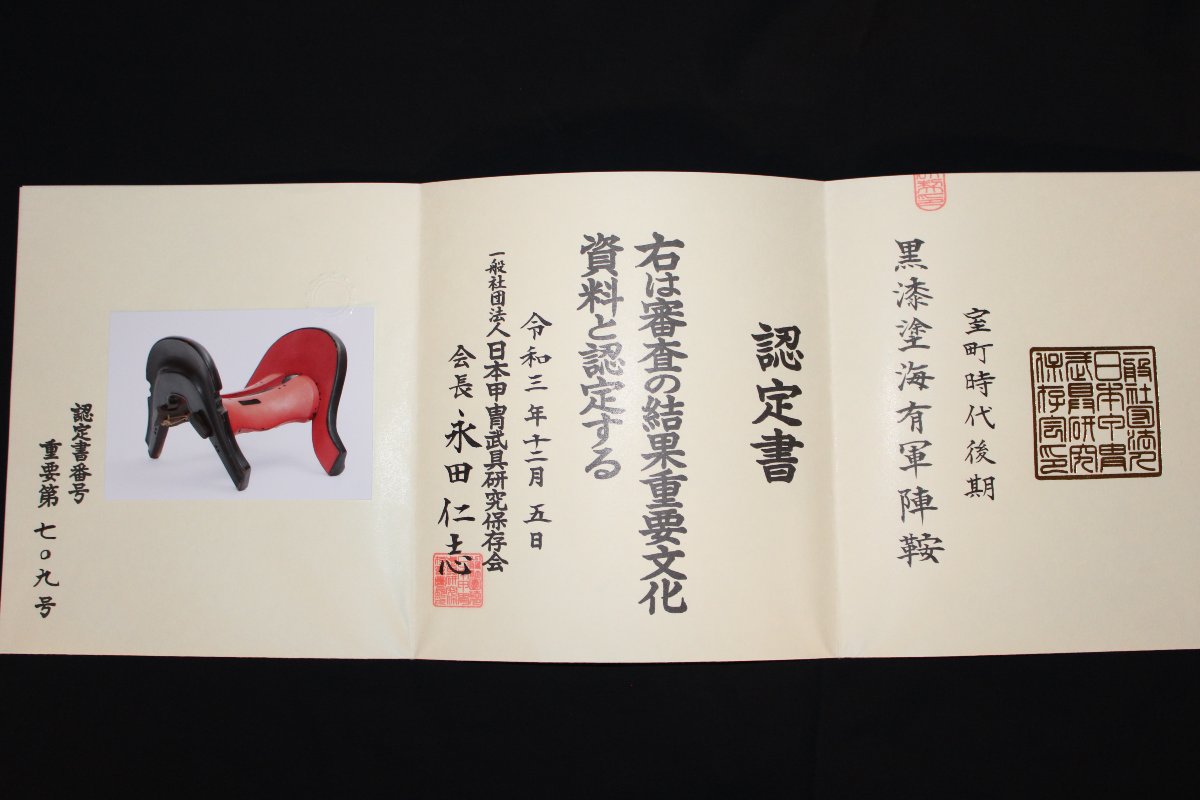 一般社団法人
日本甲冑
武具研究
保存会印
室町時代後期
黒漆塗海有軍陣鞍
認定書
右は審査の結果重要文化
資料と認定する
令和三年十二月五日
一般社団法人日本甲冑武具研究保存会
会長 永田仁志
認定書番号
重要第七〇九号